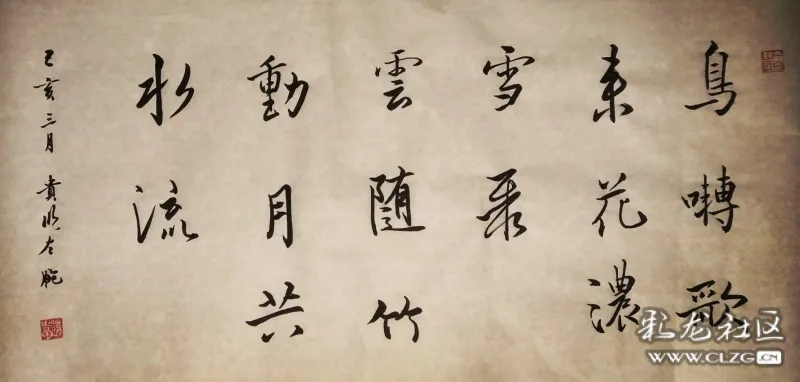 鳥囀歌
来花濃
雪聚
雲随竹
動月共
水流
己亥三月 貴 左腕
彩龙社区
WWW.CLZG.CN